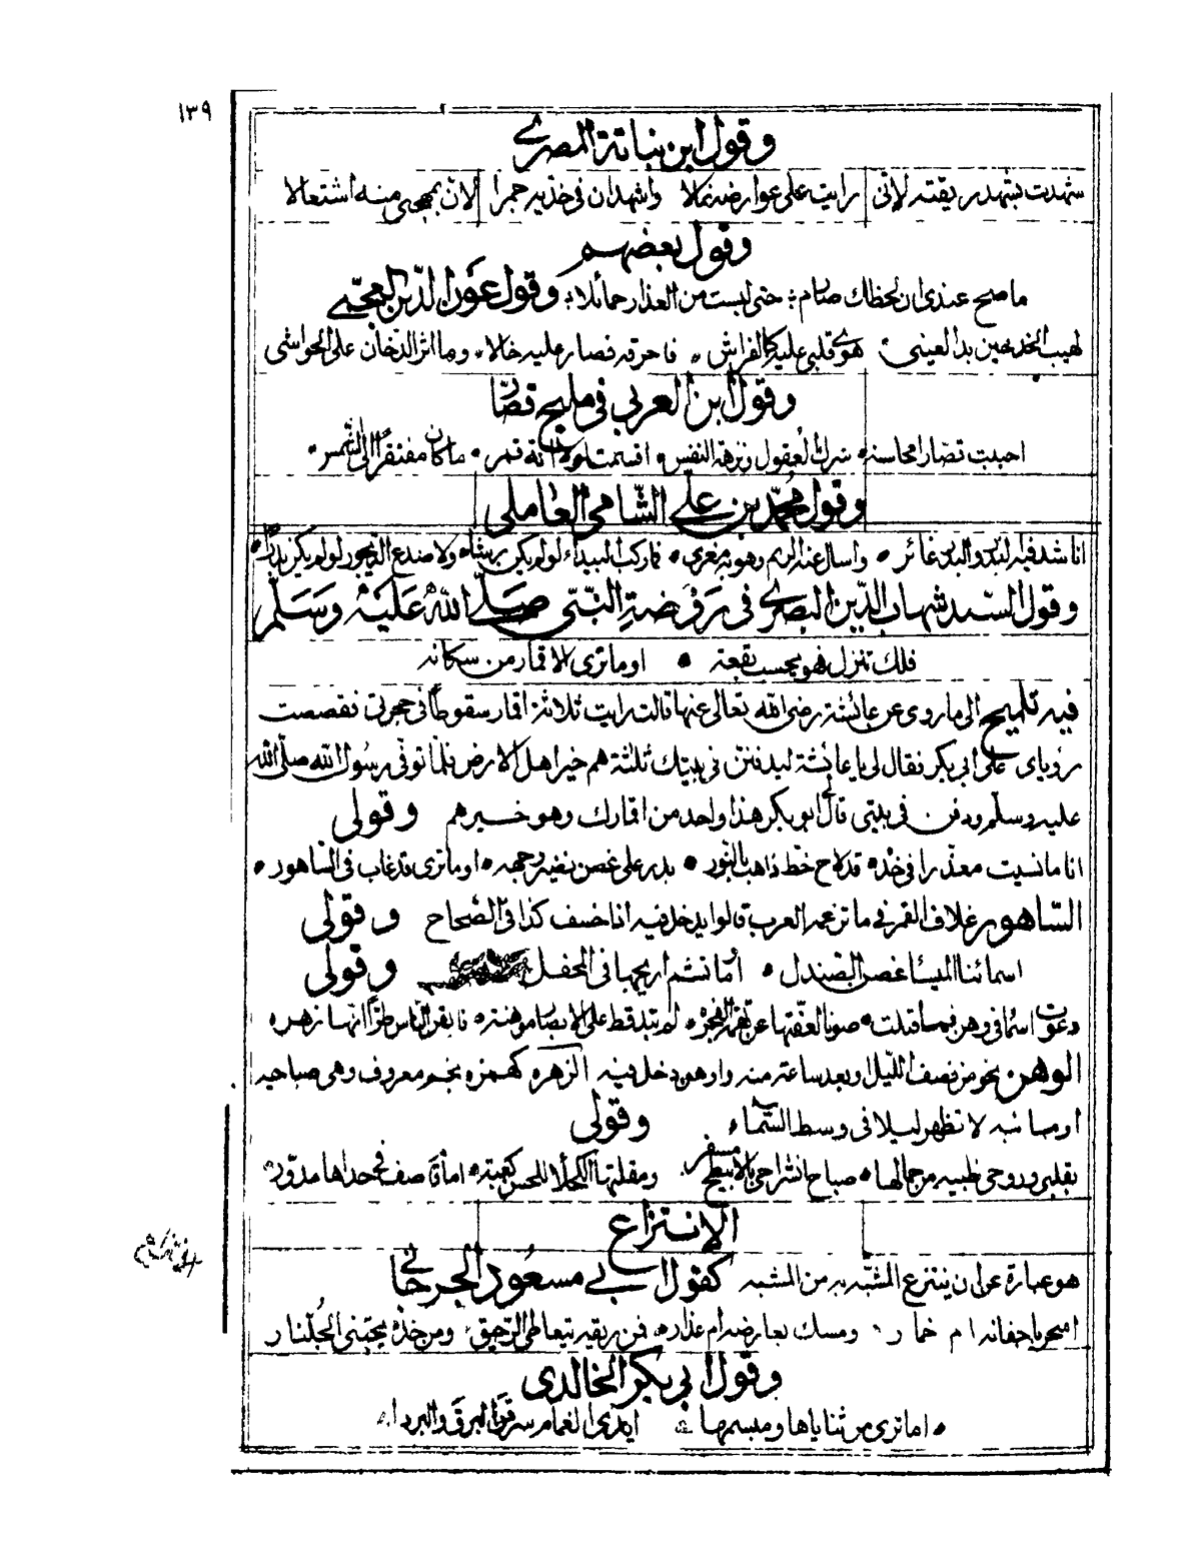 ١٣٩
وقول ابن نباتة المصري
شهدت بشهد ريقته لاني رايت على عوارضه نمالا واشهد ان في خديه جمرا لان بمهجتي منه اشتعالا
وقول بعضهم
ما صح عندي ان لحظك صارم حتى لبست من العذار حمائلا وقول عون الدين العجمي
لهيب الخد حين بدا لعيني هوى قلبي عليه كالفراش فاحرقه فصار عليه خالا وما اثر الدخان على الحواشي
وقول ابن العربي في مليح قصار
احببت قصارا محاسنه شرك العقول ونزهة النفس اقسمت لولا انه قمر ما كان مفتقرا الى الشمس
وقول محمد بن علي الشامي العاملي
اناشد فيه البدر والبدر غائر واسال عنه الريم وهو به مغرى فما ركب البيداء لو لم يكن رشاه ولا صدع الديجور لو لم يكن بدرا
وقول السيد شهاب الدين البصري في روضة النبي صلى الله عليه وسلم
فلك تنزل فهو يحسب بقعة اوما ترى الاقمار من سكانه
فيه تلميح الى ما روي عن عائشة رضي الله تعالى عنها قالت رايت ثلاثة اقمار سقوطا في حجرتي فقصصت
رؤياي على ابي بكر فقال لي يا عائشة ليدفنن في بيتك ثلثة هم خير اهل الارض فلما توفي رسول الله صلى الله
عليه وسلم ودفن في بيتي قال ابو بكر هذا واحد من اقمارك وهو خيرهم وقولي
انا ما نسيت معذرا في خده قد لاح خط ذاهب بالنور بدر على غصن نضير وجهه اوما ترى قد غاب في الساهور
الساهور غلاف القمر في ما تزعم العرب قالوا يدخل فيه اذا خسف كذا في الصحاح وقولي
اسمائنا الميسا غصن الصندل اما نشم اريجها في المحفل وقولي
دعوت اسما في وهن فما قبلت صونا لعفتها عن تهمة الفجره لم تبد قط على الابصار من هنة فايقن الناس طرا انها زهره
الوهن نحو من نصف الليل او بعد ساعة منه واوهن دخل فيه الزهره كهمزه نجم معروف وهي صباحية
او مسائيه لا تظهر ليلا في وسط السماء وقولي
بقلبي وروحي ظبيه من جمالها صباح انشراحي بالاباطح مسفر ومقلتها الكحلا للحسن كعبة اما قاصف في حداها مدور
الانتزاع
هو عبارة عن ان ينتزع المشبه به من المشبه كقول ابي مسعود الجرجاني
اسحر باجفانه ام خمار ومسك بعارضه ام عذاره فمن ريقه يتعاطى الرحيق ومن خده يجتنى الجلنار
وقول ابي بكر الخالدي
اما ترى من ثناياها ومبسمها ايدي الغمام سرقن البرق والبردا